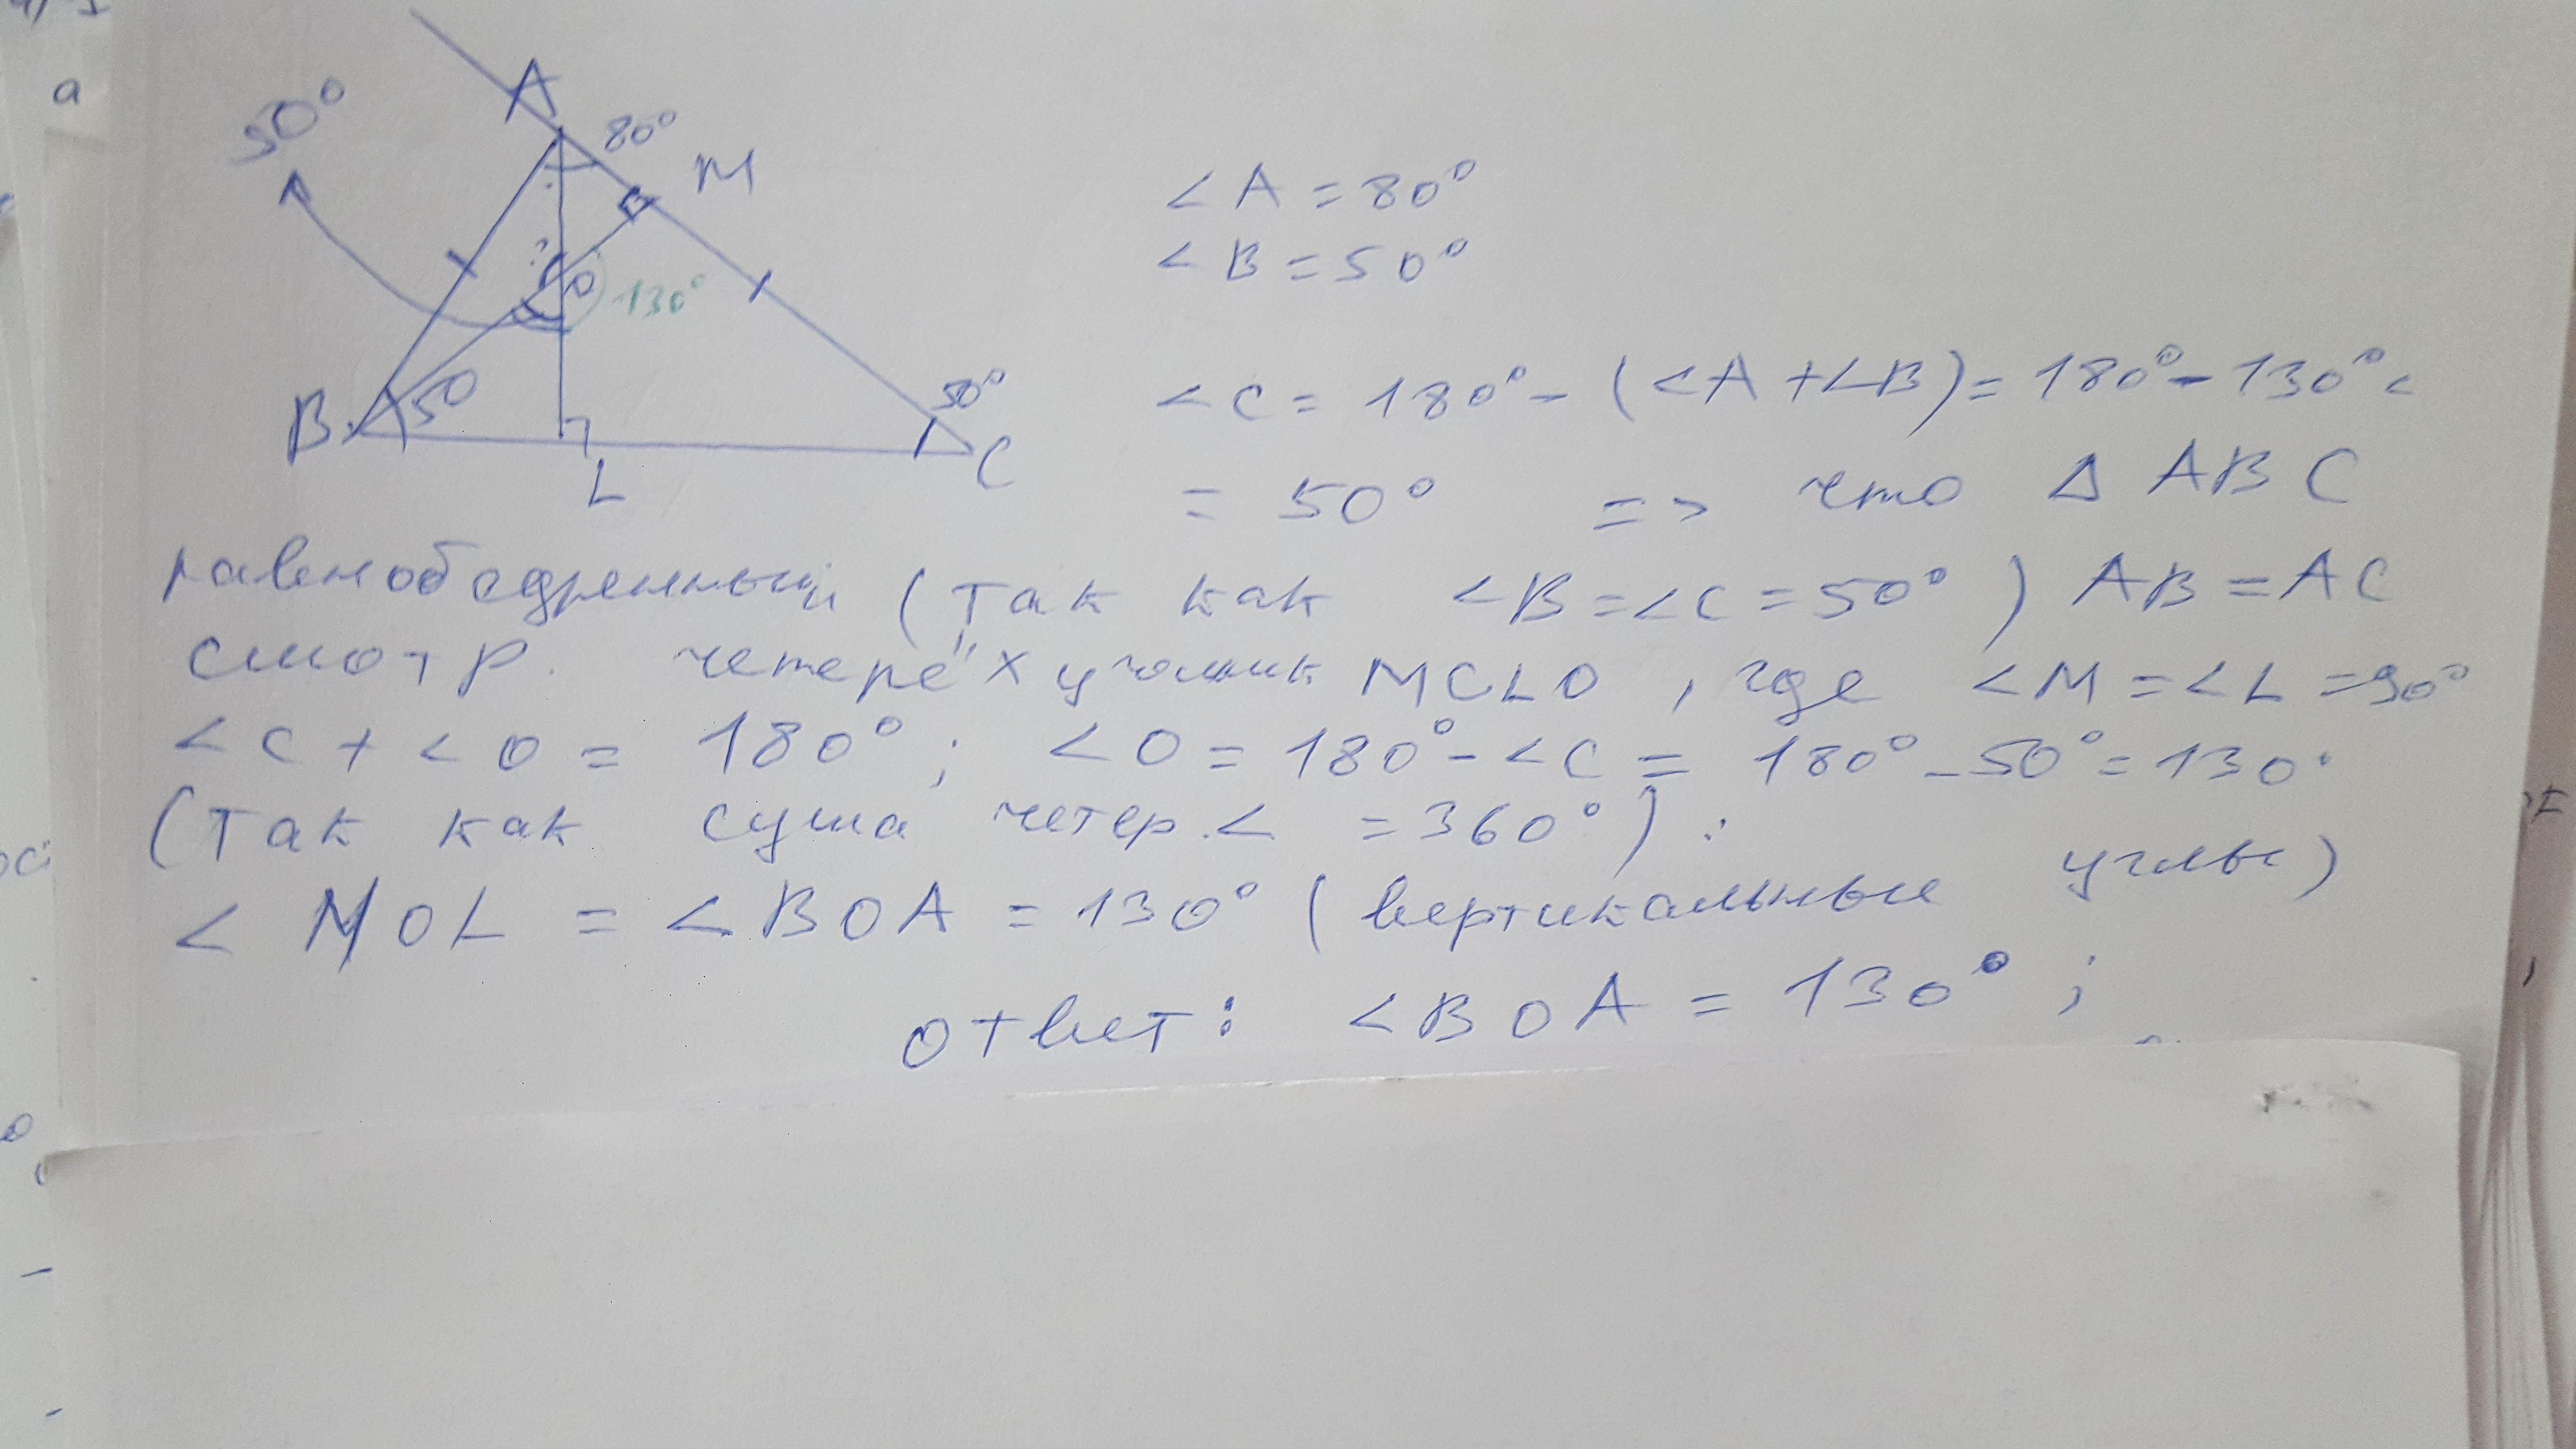 a
50°
A
80°
M
?
O
130°
B
50
50°
L
C
< A = 80°
< B = 50°
< C = 180° - (<A + <B) = 180° - 130° =
= 50° => что Δ ABC
равнобедренный (так как <B = <C = 50°) AB = AC
смотр. четерёх уголник MCLO, где <M = <L = 90°
<C + <O = 180°; <O = 180° - <C = 180° - 50° = 130°
(так как сума четер. < = 360°):
< MOL = <BOA = 130° (вертикальные углы)
ответ: <BOA = 130°;